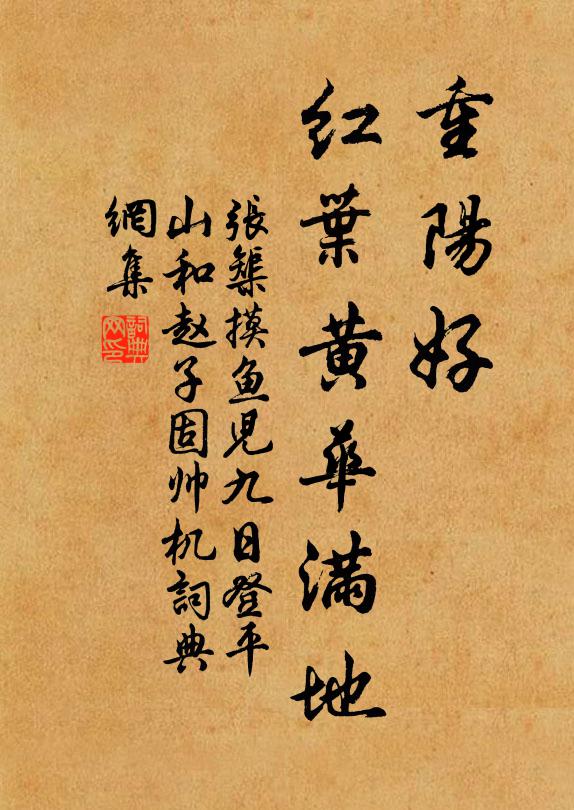 重陽好
红葉黄華滿地
張榘摸魚児九日登平
山和赵子固帅机詞典
網集
詞典网印